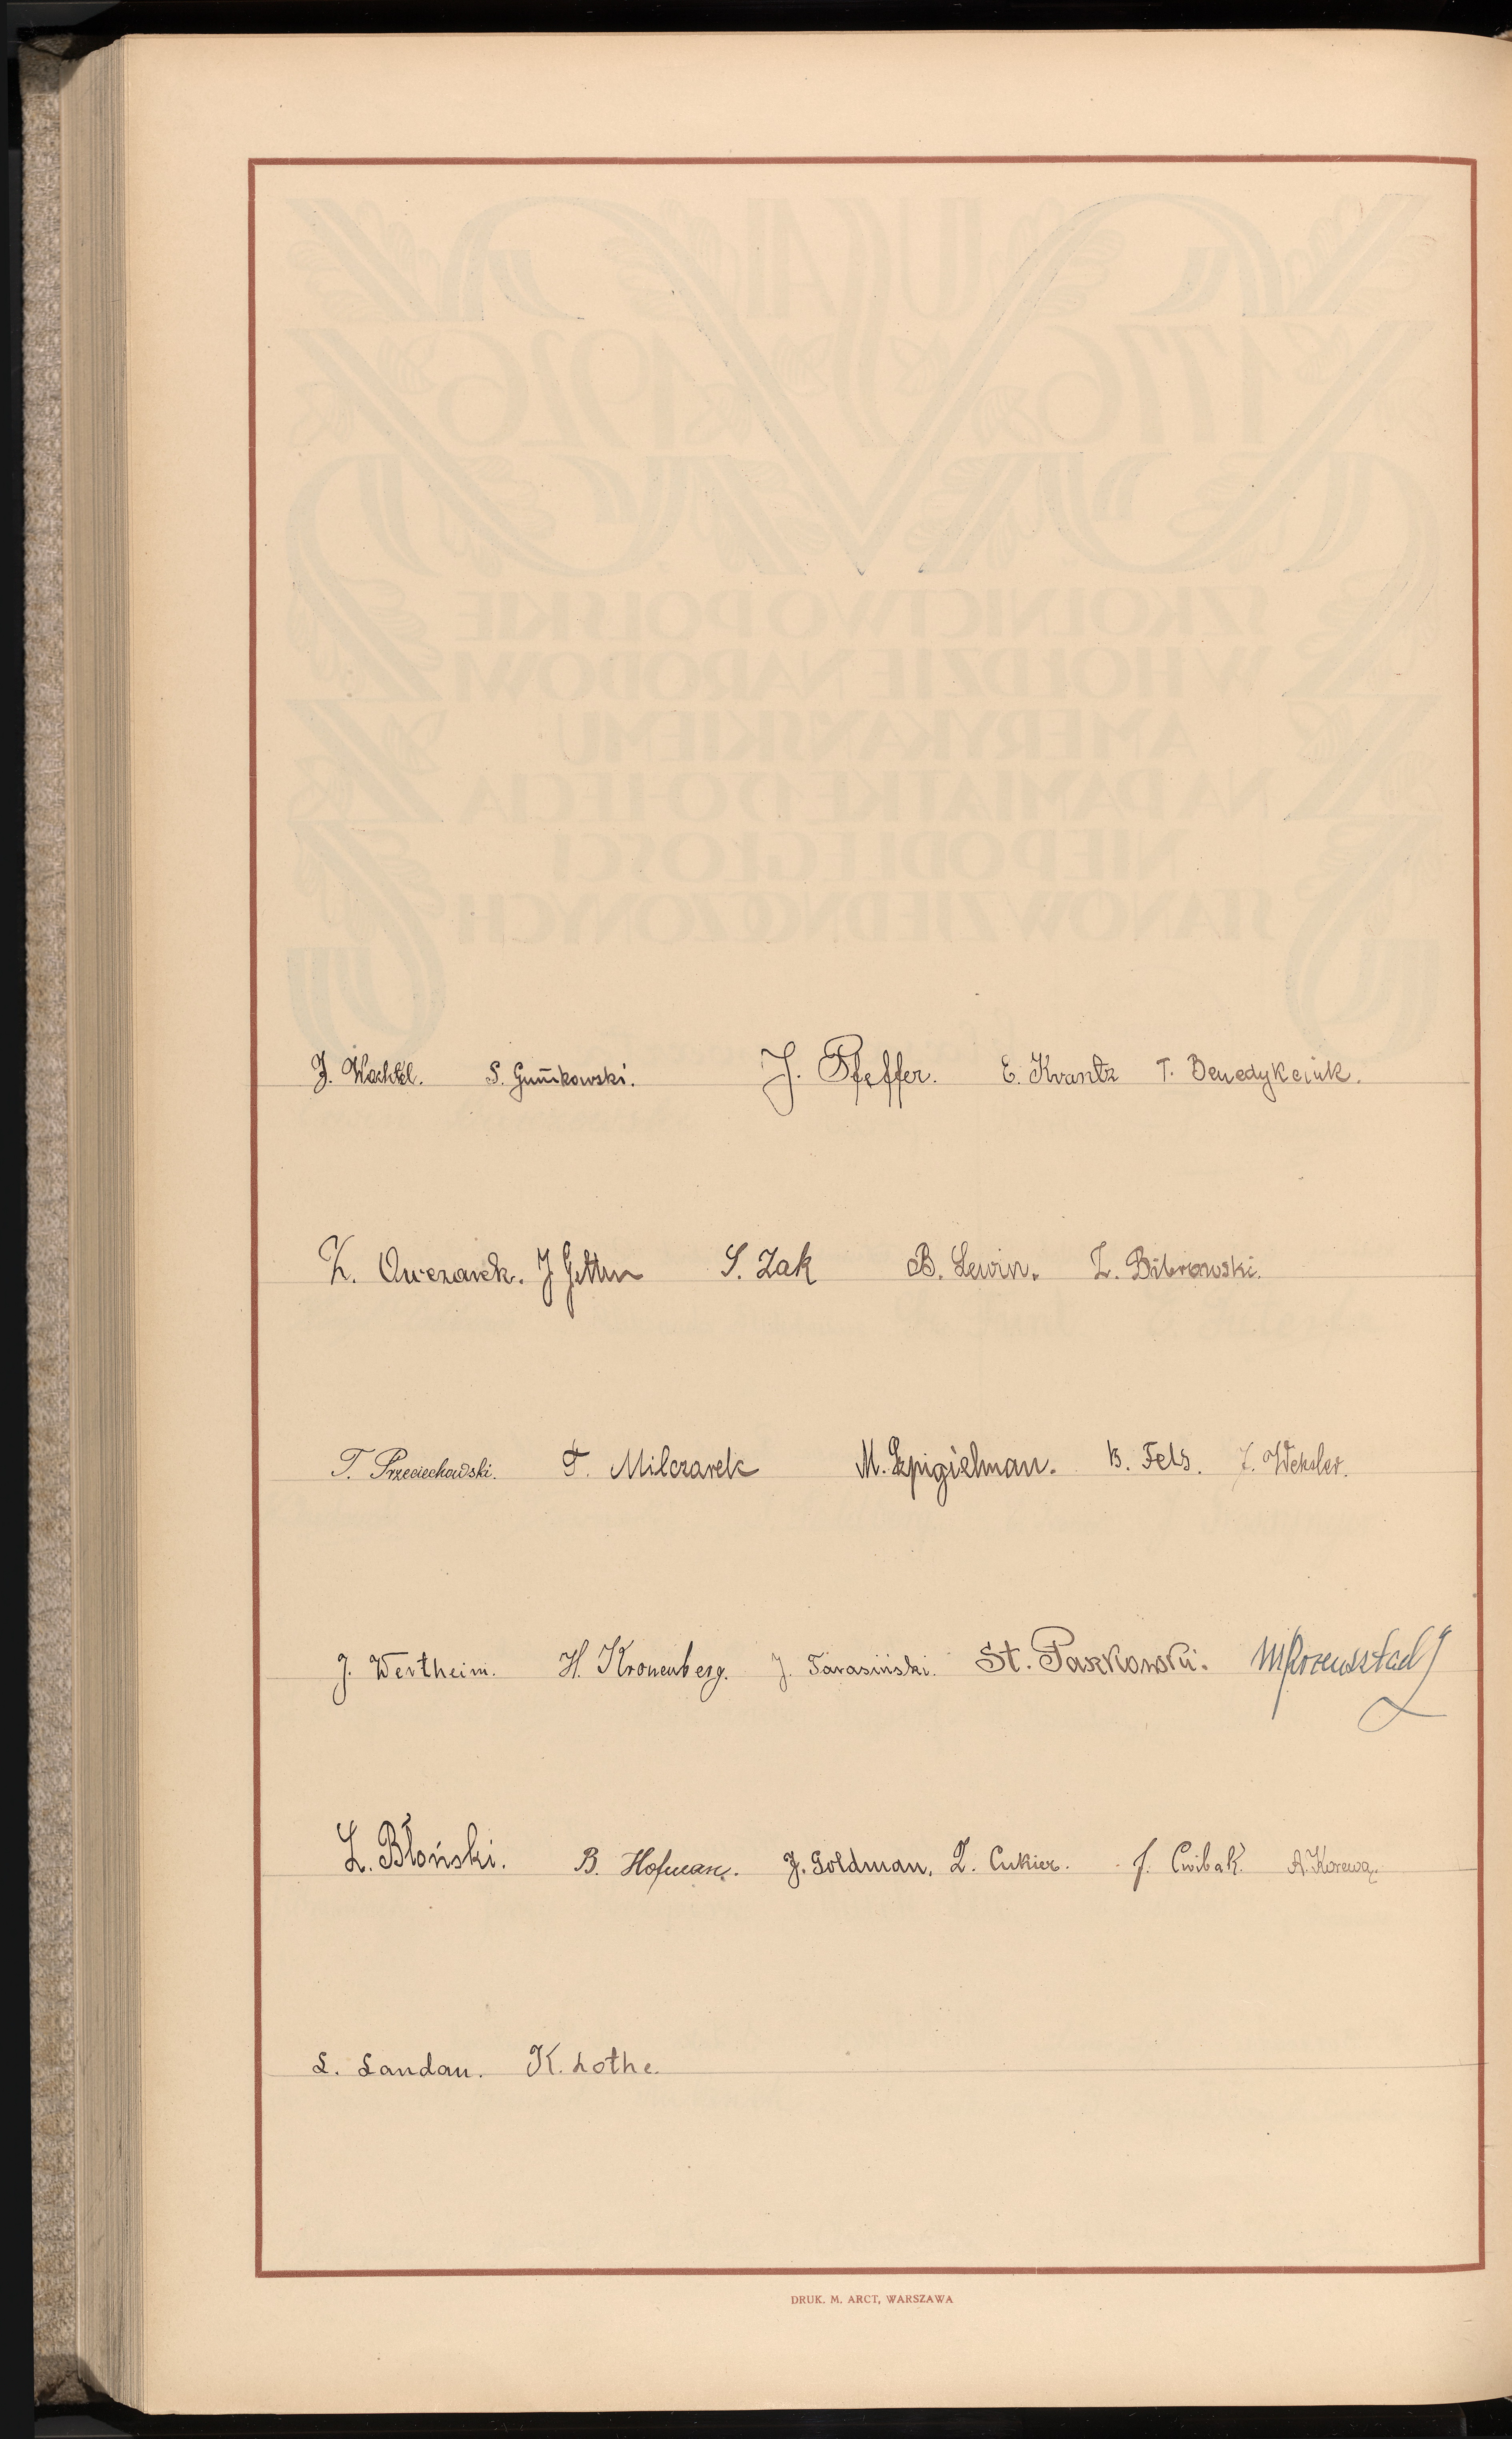 J. Wachtel. S. Gutnikowski. J. Pfeffer. E. Krantz T. Benedykciuk.
Z. Owczarek. J Gettler S. Zak B. Lewin. L. Bibrowski.
T. Przeciechowski. F. Milczarek M. Szpigielman. B. Fels. J. Weksler.
J. Wertheim. H. Kronenberg. J. Tarasiński. St. Paszkowski.
L. Błoński. B. Hofman. J. Goldman. L. Cukier. J. Cwibak A. Korewa.
L. Landau. K. Lothe.
DRUK. M. ARCT, WARSZAWA